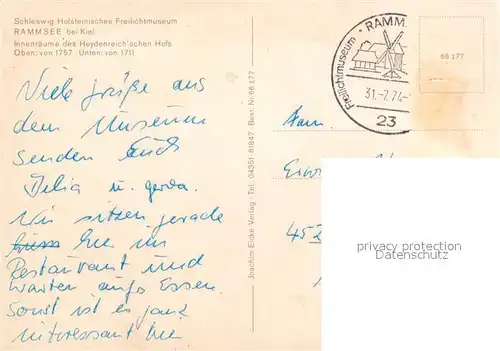 Schleswig Holsteinisches Freilichtmuseum
RAMMSEE bei Kiel
Innenräume des Heydenreich'schen Hofs
Oben: von 1767 Unten: von 1711
Viele Grüße aus
dem Museum
senden Euch
u. Gerda.
Wir sitzen gerade
hier im
Restaurant und
warten aufs Essen.
Sonst ist es ganz
interessant hier.
Joachim Eicke Verlag · Tel.: 04351-81847 · Best. Nr. 66 177
Freilichtmuseum · RAMM
31.-7.74-
23
66 177
Fam.
45
privacy protection
Datenschutz